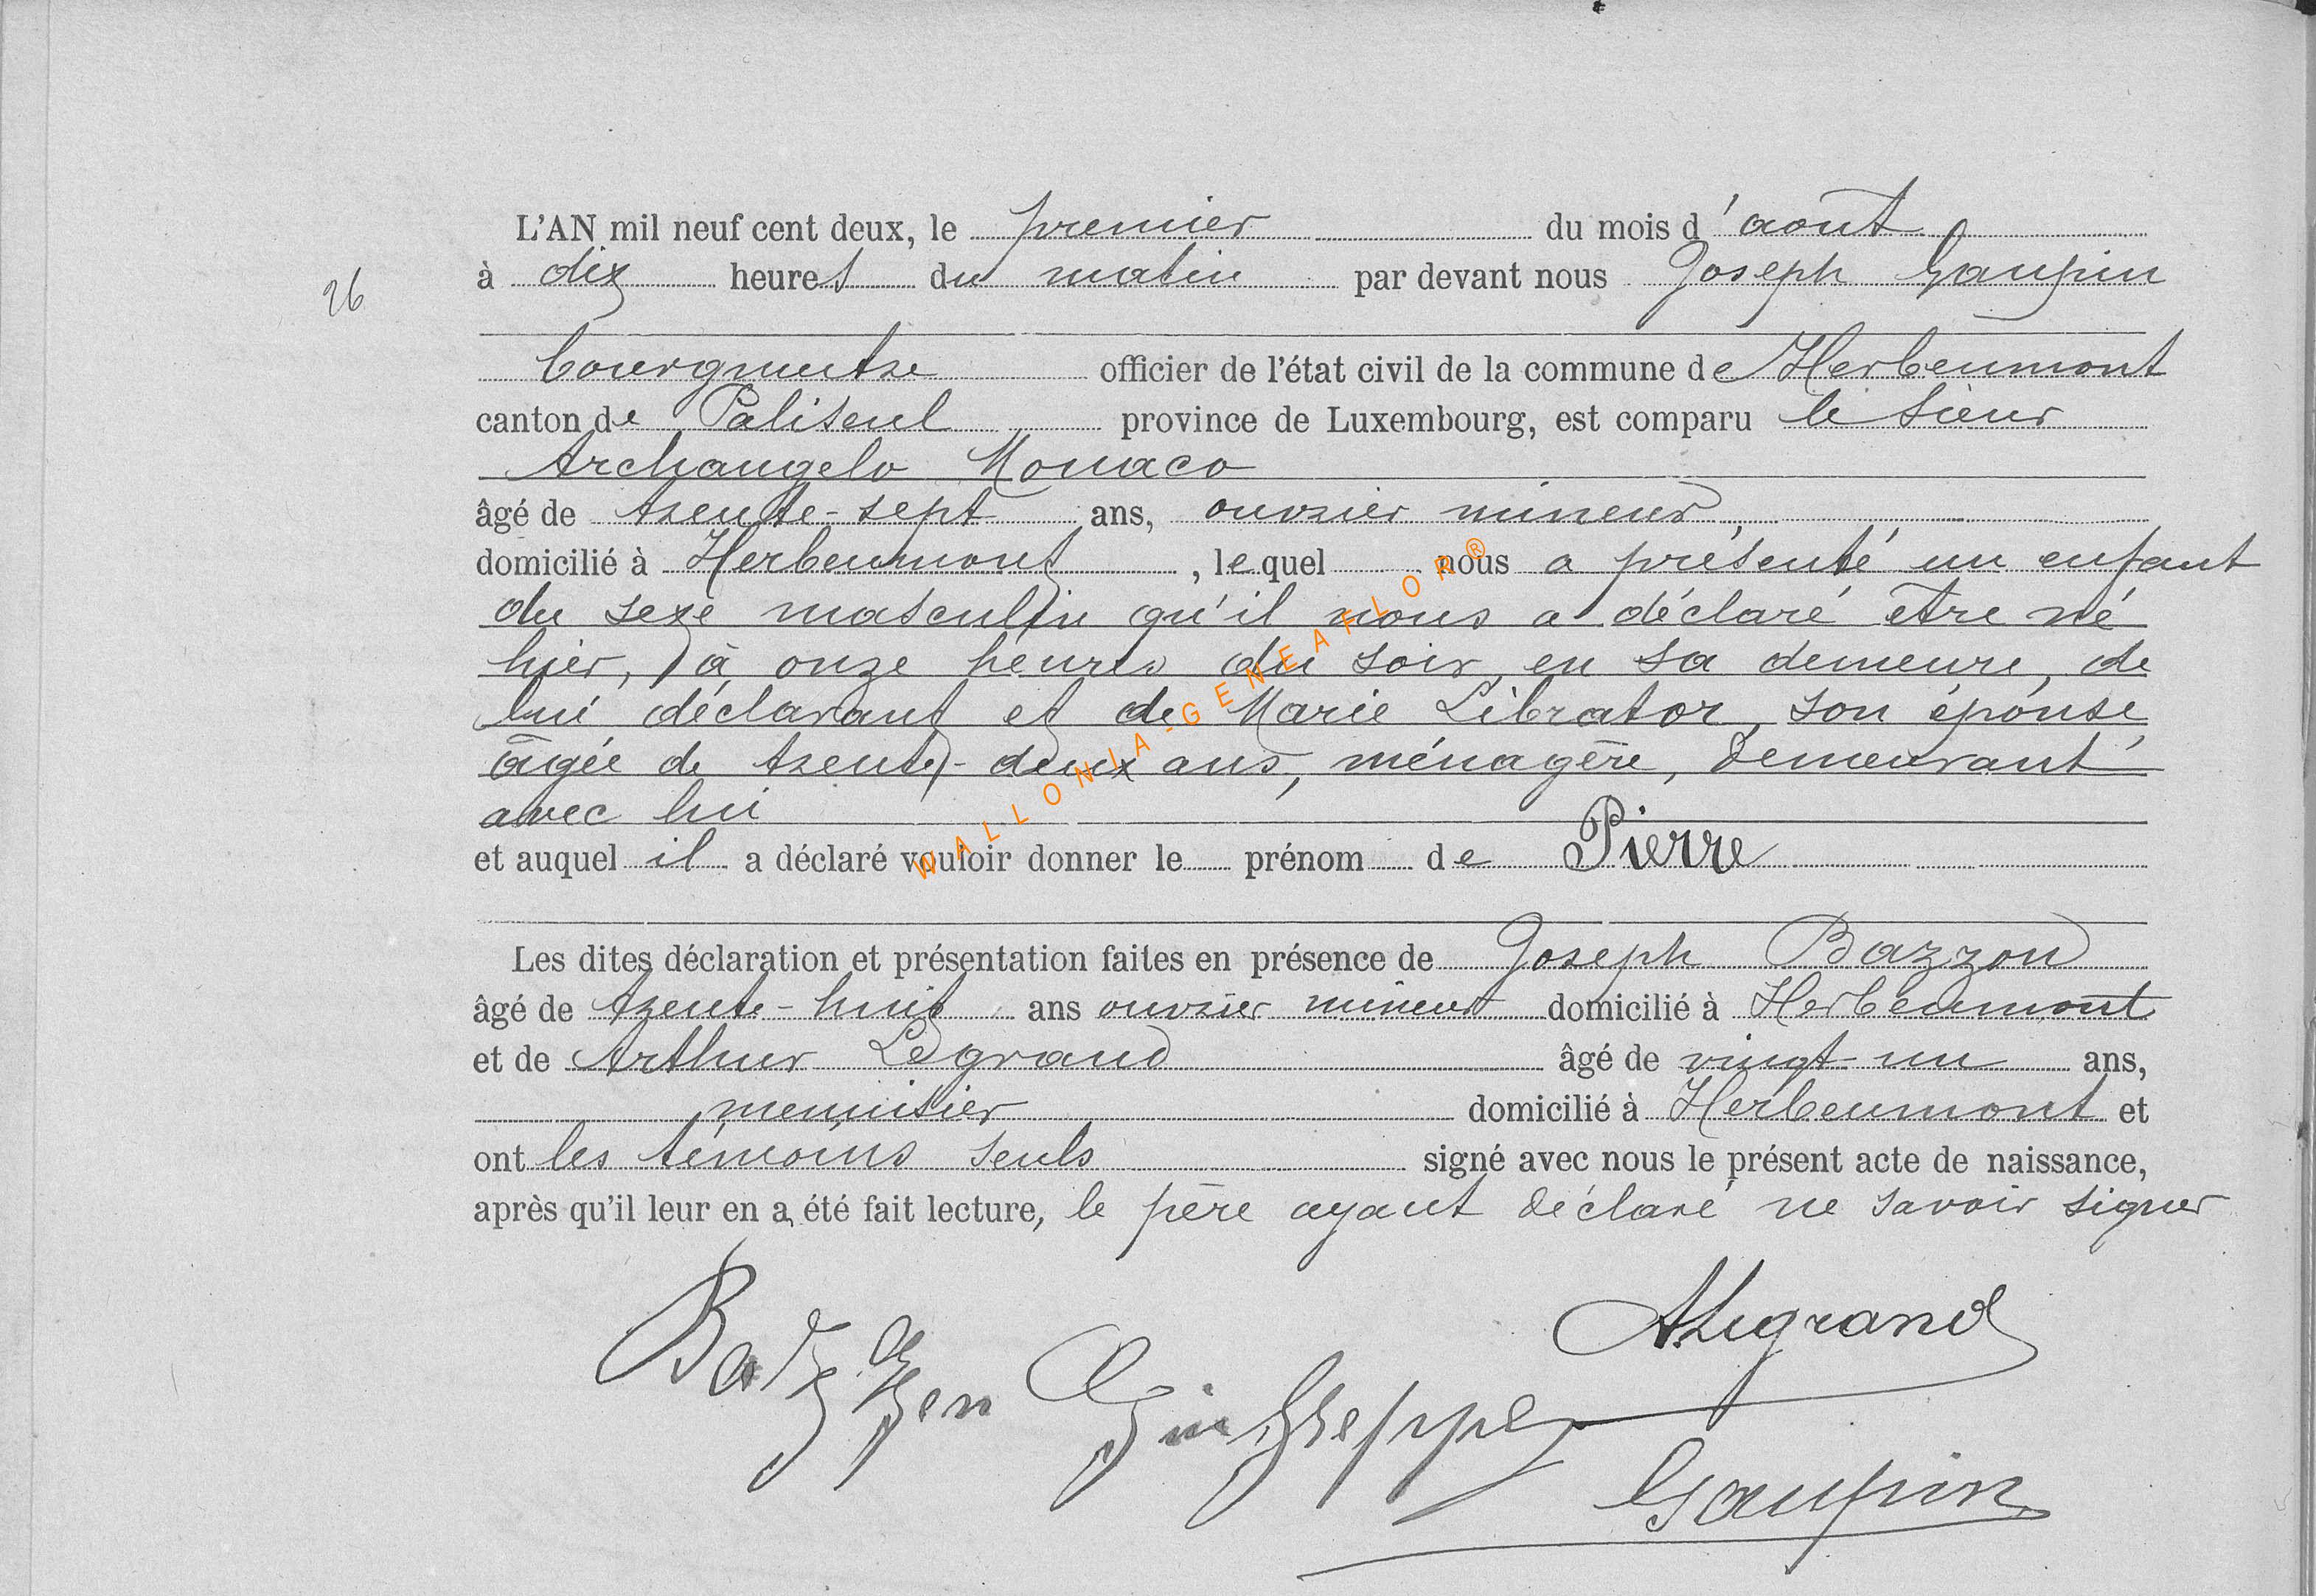 L'AN mil neuf cent deux, le premier du mois d'août
26
à dix heures du matin par devant nous Joseph Gaupin
bourgmestre officier de l'état civil de la commune de Herbeumont
canton de Paliseul province de Luxembourg, est comparu le sieur
Archangelo Monaco
âgé de trente-sept ans, ouvrier mineur,
domicilié à Herbeumont, lequel nous a présenté un enfant
du sexe masculin qu'il nous a déclaré être né
hier, à onze heures du soir, en sa demeure, de
lui déclarant et de Marie Librator, son épouse,
âgée de trente-deux ans, ménagère, demeurant
avec lui
et auquel il a déclaré vouloir donner le prénom de Pierre
Les dites déclaration et présentation faites en présence de Joseph Bazzon
âgé de trente-huit ans ouvrier mineur domicilié à Herbeumont
et de Arthur Legrand âgé de vingt-un ans,
menuisier domicilié à Herbeumont et
ont les témoins seuls signé avec nous le présent acte de naissance,
après qu'il leur en a été fait lecture, le père ayant déclaré ne savoir signer
ALegrand
Gaupin
WALLONIA-GENEAFLOR®